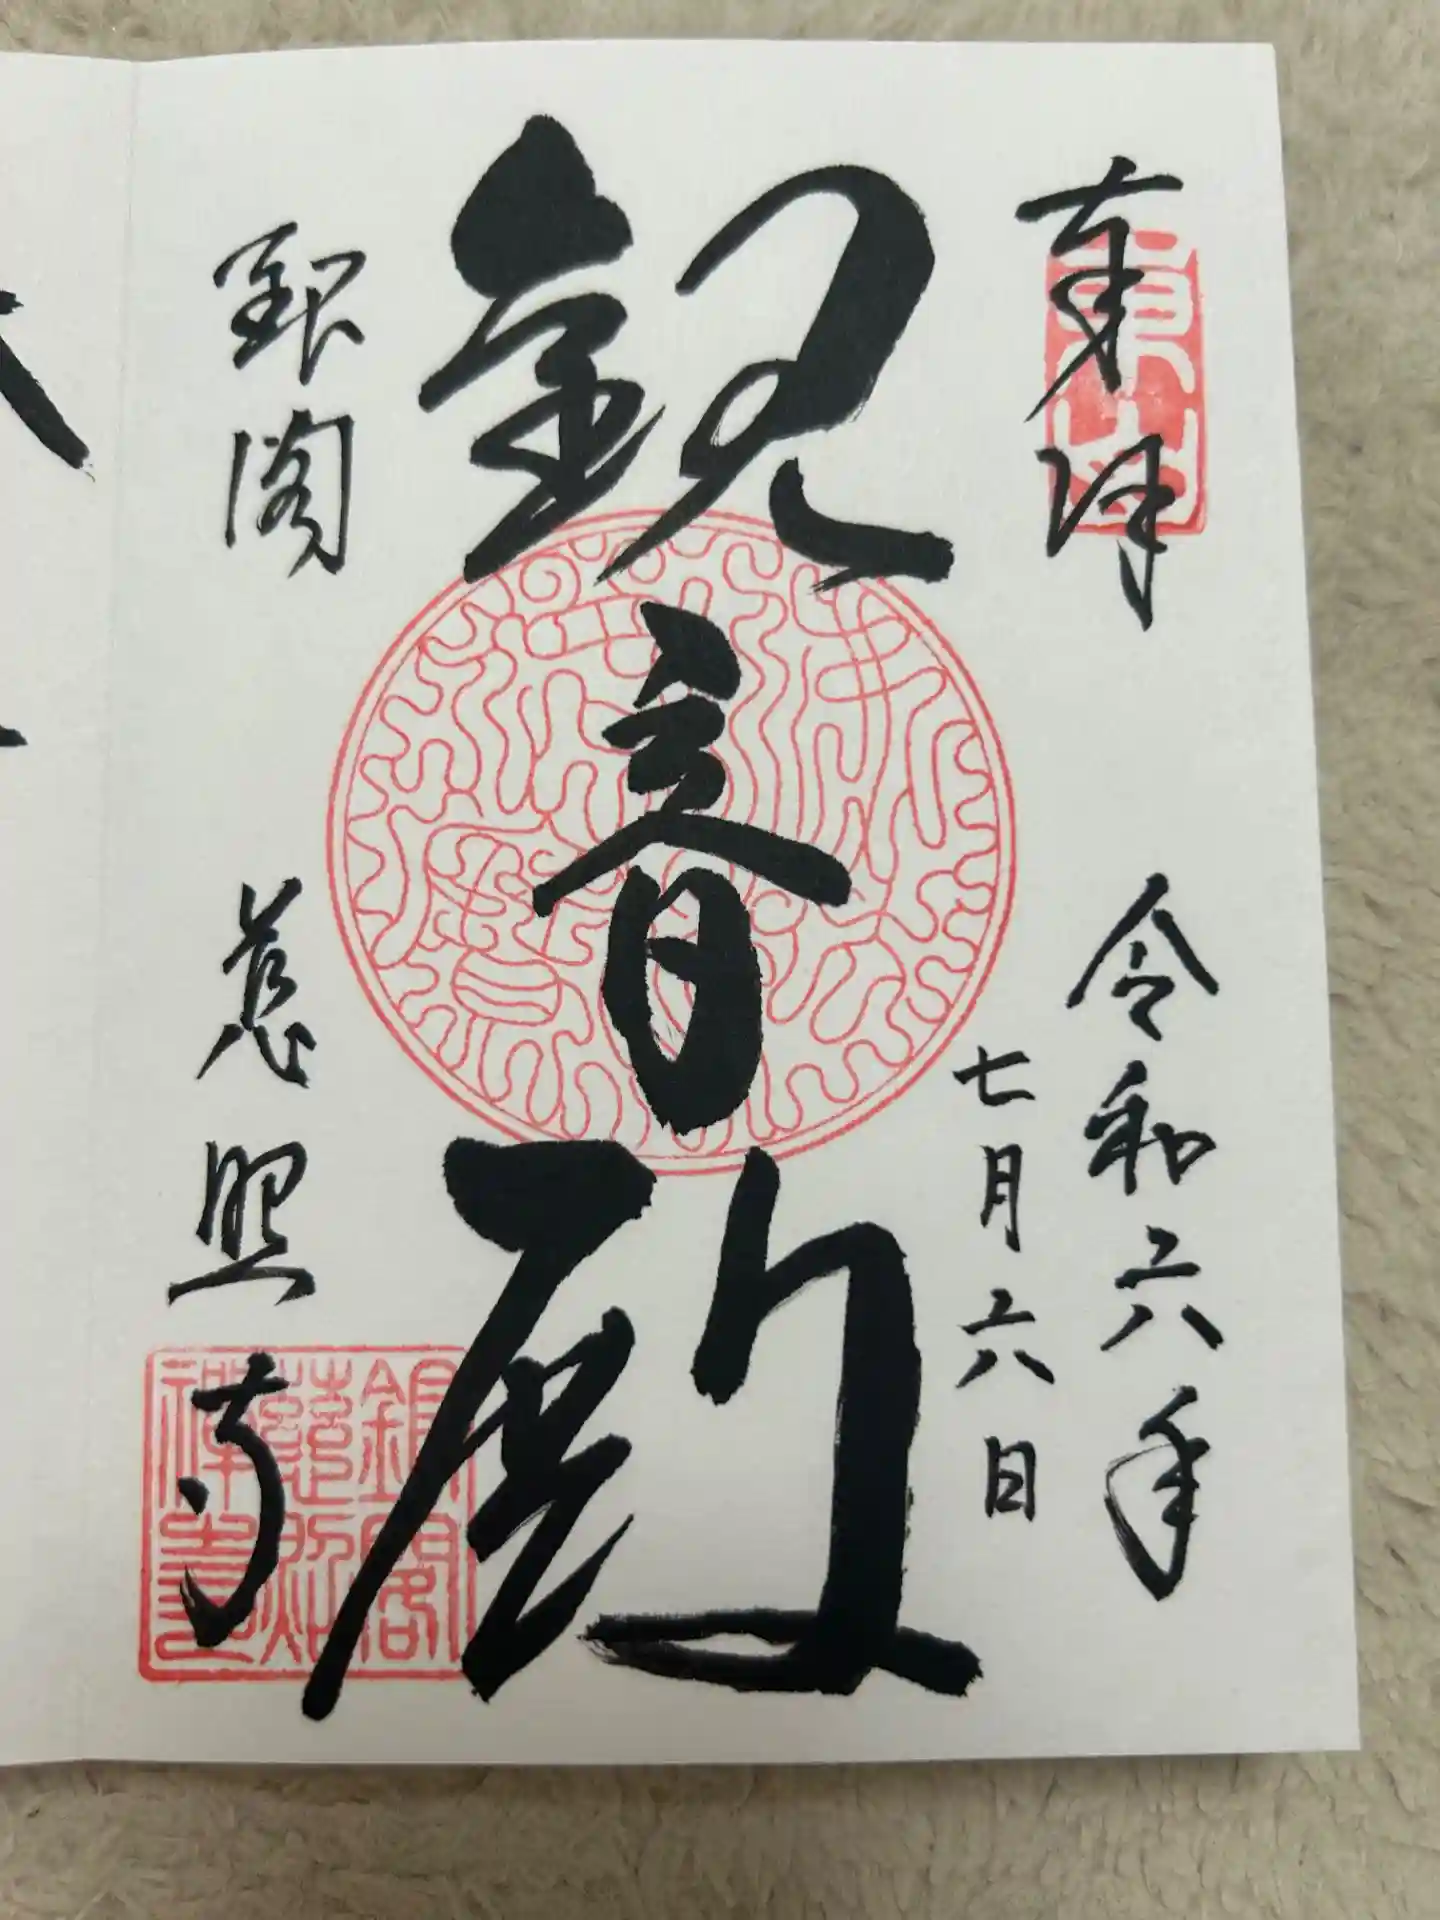 奉拝
令和六年
七月六日
観音殿
銀閣 慈照寺
東山
銀閣
慈照
禅寺